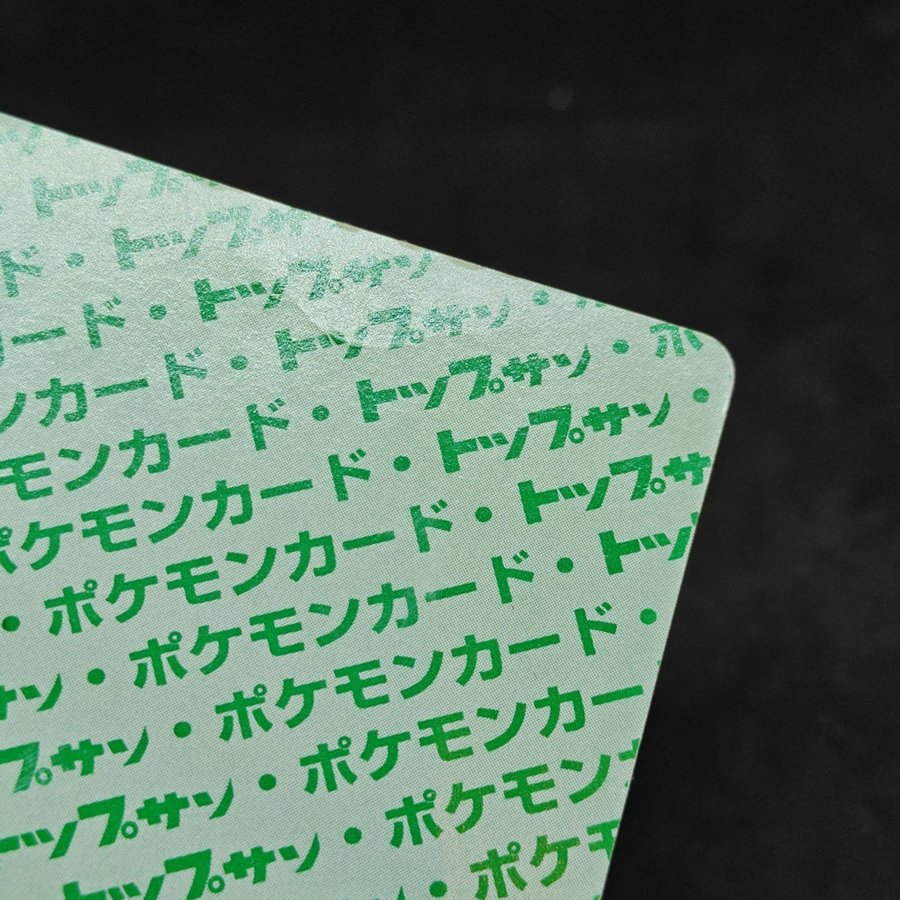 トップ
ド・トップサン
カード・トップサン
ンカード・トップサン・
モンカード・トップサン・ポ
ポケモンカード・トップサン・
・ポケモンカード・トップサ
サン・ポケモンカード・トッ
プサン・ポケモンカード・
トップサン・ポケモンカー
トップサン・ポケモン
・ポケモ